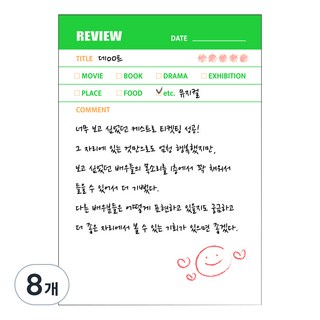 REVIEW
DATE
TITLE 데00트
MOVIE BOOK DRAMA EXHIBITION
PLACE FOOD etc. 뮤지컬
COMMENT
너무 보고 싶었던 캐스트로 티켓팅 성공!
그 자리에 있는 것만으로도 엄청 행복했지만,
보고 싶었던 배우들의 목소리를 1층에서 꽉 채워서
들을 수 있어서 더 기뻤다.
다른 배우분들은 어떻게 표현하고 있을지도 궁금하고
더 좋은 자리에서 볼 수 있는 기회가 있으면 좋겠다.
8개